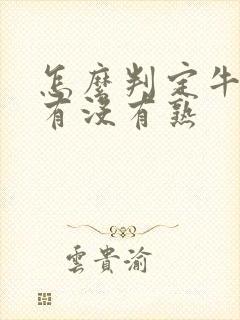 怎麼判定牛
有沒有熟
雲貴渝